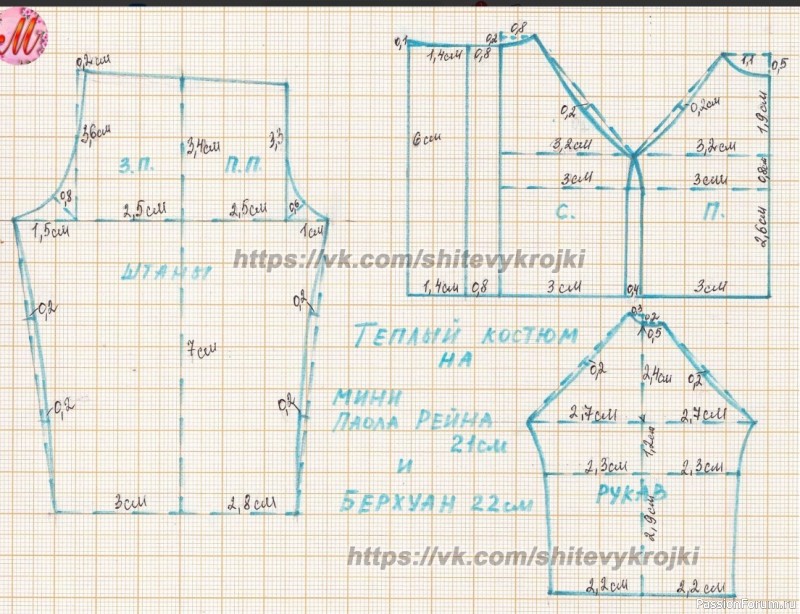 М
0,2см
3,6см
3,4см
3,3
З.П.
П.П.
0,8
0,6
2,5см
2,5см
1,5см
1см
ШТАНЫ
0,2
0,2
7см
0,2
0,2
3см
2,8см
0,1
0,2
0,8
1,4см
0,8
1,1
0,5
6см
0,2
0,2см
1,9см
3,2см
3,2см
0,8см
3см
3см
С.
П.
2,6см
1,4см
0,8
3см
0,4
3см
https://vk.com/shitevykrojki
ТЕПЛЫЙ КОСТЮМ
НА
МИНИ
ПАОЛА РЕЙНА
21см
И
БЕРХУАН 22см
0,3
0,2
0,5
0,2
2,4см
0,2
2,7см
2,7см
1,2см
2,3см
2,3см
РУКАВ
2,9см
2,2см
2,2см
https://vk.com/shitevykrojki
PassionForum.ru